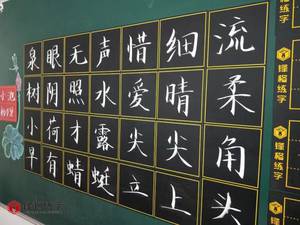 小池
泉眼无声惜细流
树阴照水爱晴柔
小荷才露尖尖角
早有蜻蜓立上头
练字
练字
练字